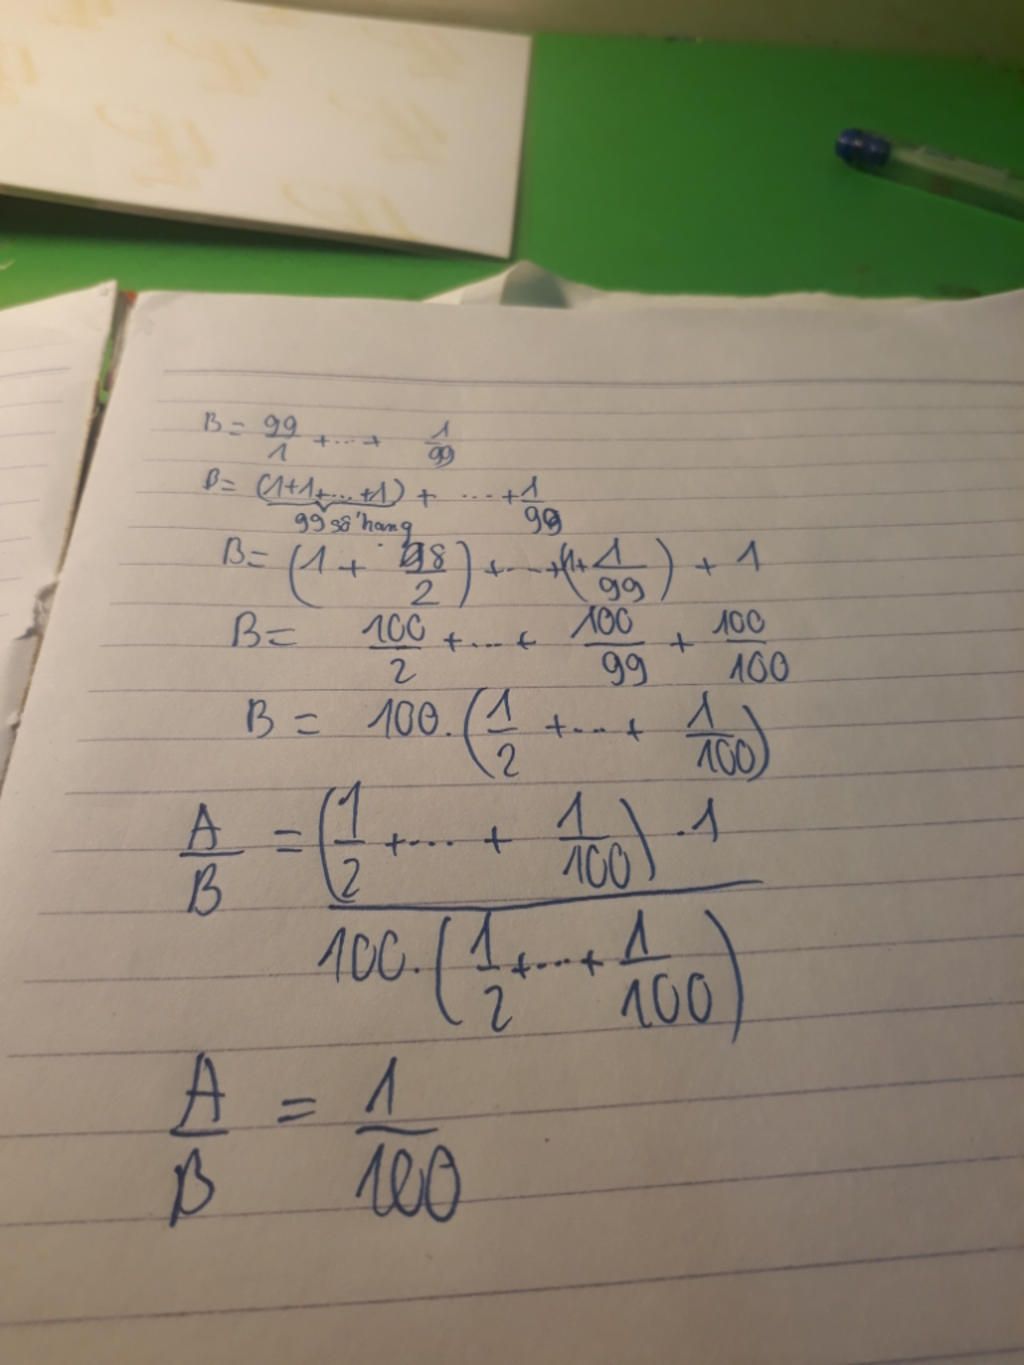 B = 99/1 + ... + 1/99
B = (1+1+...+1) + ... + 1/99
99 số hạng
B = (1 + 98/2) + ... + (1 + 1/99) + 1
B = 100/2 + ... + 100/99 + 100/100
B = 100.(1/2 + ... + 1/100)
A/B = (1/2 + ... + 1/100) . 1 / 100.(1/2 + ... + 1/100)
A/B = 1/100